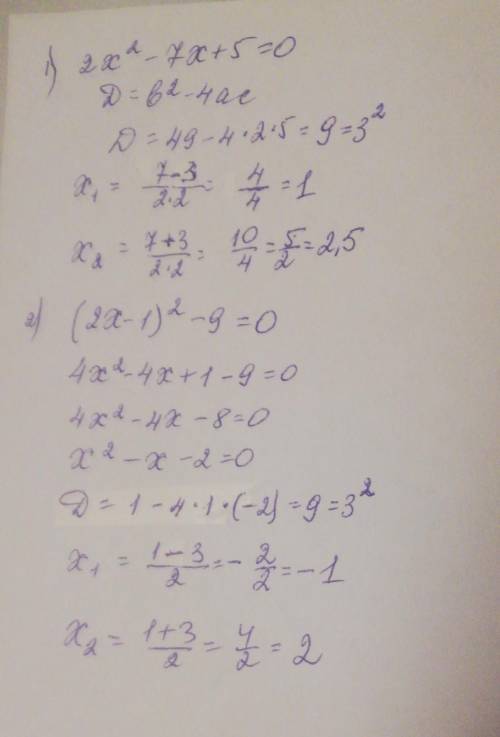 1) 2x² - 7x + 5 = 0
D = b² - 4ac
D = 49 - 4 · 2 · 5 = 9 = 3²
x₁ = (7-3)/(2·2) = 4/4 = 1
x₂ = (7+3)/(2·2) = 10/4 = 5/2 = 2,5
2) (2x - 1)² - 9 = 0
4x² - 4x + 1 - 9 = 0
4x² - 4x - 8 = 0
x² - x - 2 = 0
D = 1 - 4 · 1 · (-2) = 9 = 3²
x₁ = (1-3)/2 = - 2/2 = - 1
x₂ = (1+3)/2 = 4/2 = 2